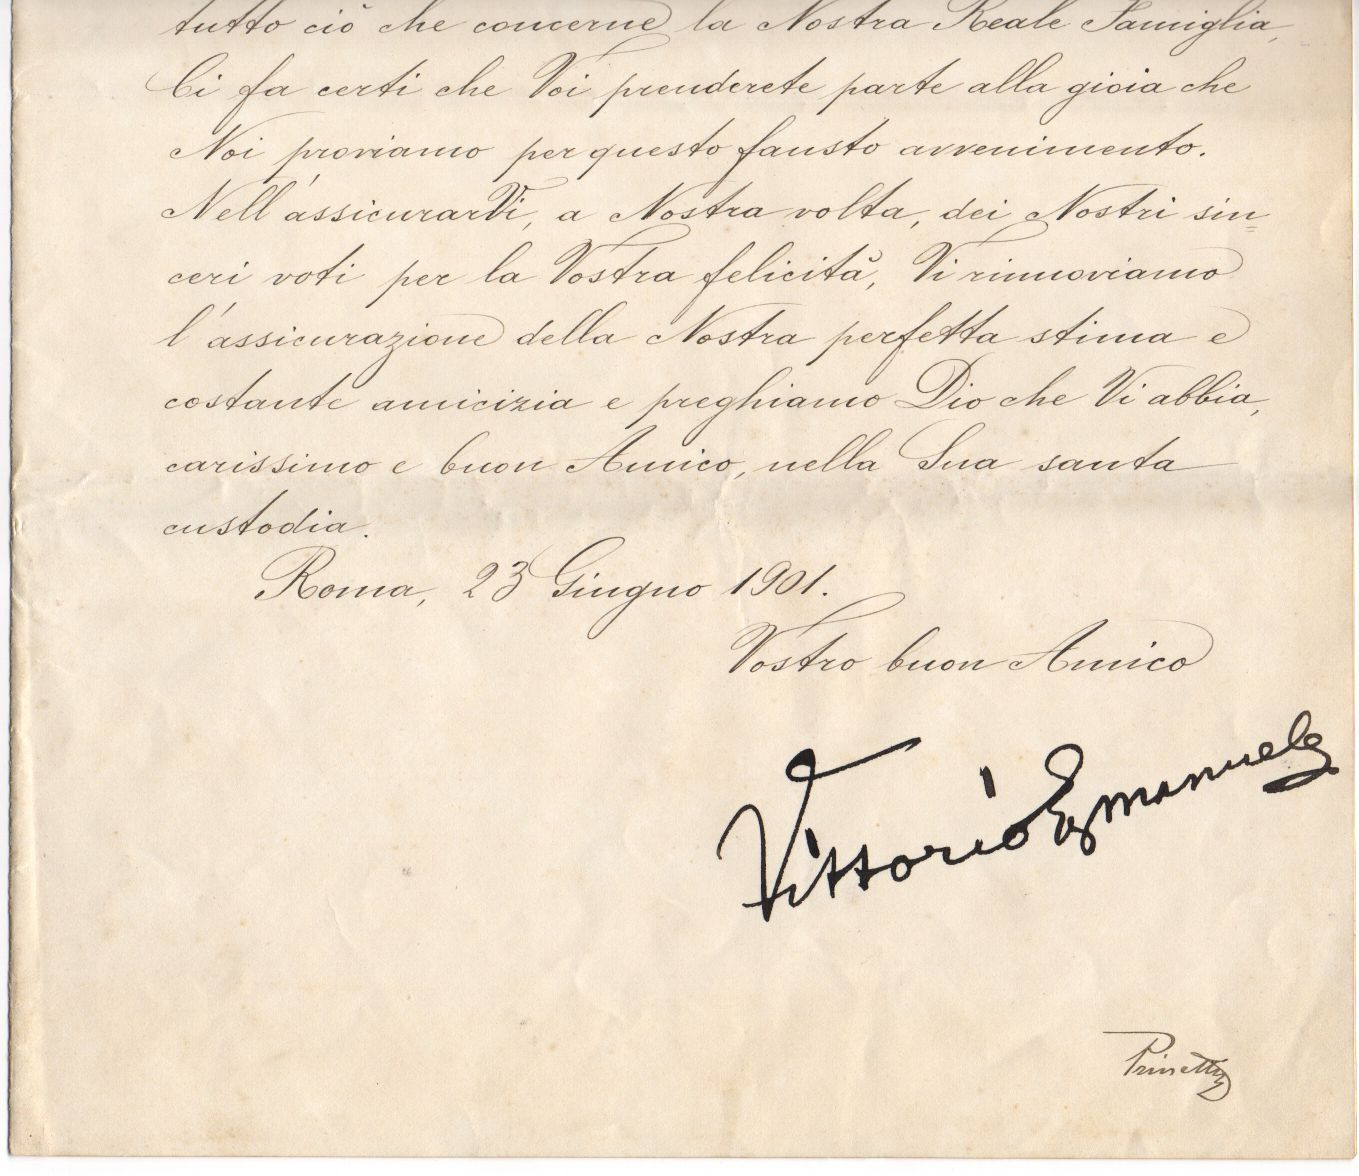 tutto ciò che concerne la Nostra Reale Famiglia,
Ci fa certi che Voi prenderete parte alla gioia che
Noi proviamo per questo fausto avvenimento.
Nell'assicurarVi, a Nostra volta, dei Nostri sin=
ceri voti per la Vostra felicità, Vi rinnoviamo
l'assicurazione della Nostra perfetta stima e
costante amicizia e preghiamo Dio che Vi abbia,
carissimo e buon Amico, nella Sua santa
custodia.
Roma, 23 Giugno 1901.
Vostro buon Amico
Vittorio Emanuele
Prinetti